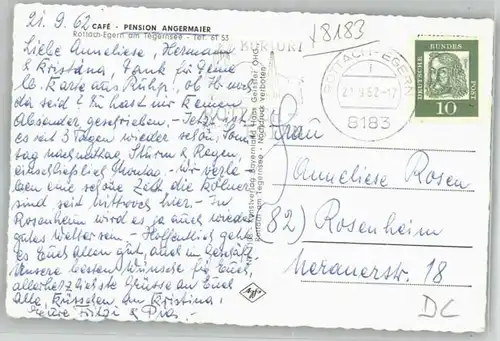 21.9.62
CAFÉ - PENSION ANGERMAIER
Rottach-Egern am Tegernsee - Tel. 61 53
Liebe Anneliese, Hermann
& Kristina, Dank für Deine
lb. Karte aus Ruhp., ob Ihr noch
da seid? Du hast mir keinen
Absender geschrieben. - Jetzt ist
es seit 3 Tagen wieder schön, Sonn
tag nachmittag, Sturm & Regen,
einschließlich Montag. - Wir verle
ben eine schöne Zeit die Kölner
sind seit Mittwoch hier. - In
Rosenheim wird es ja auch wieder
gutes Wetter sein. - Hoffentlich geht
es Euch allen gut, auch im Geschäft.
Unsere besten Wünsche für Euch,
allerherzlichste Grüsse an Euch
alle, Küsschen an Kristina,
Eure
8183
KURORT
ROTTACH-EGERN
21.9.62-17
8183
DEUTSCHE BUNDESPOST
10
Rottach am Tegernsee - Nachdruck verboten
Agfa
Frau
Anneliese Rosen
(82) Rosenheim
Meranerstr. 18
DC